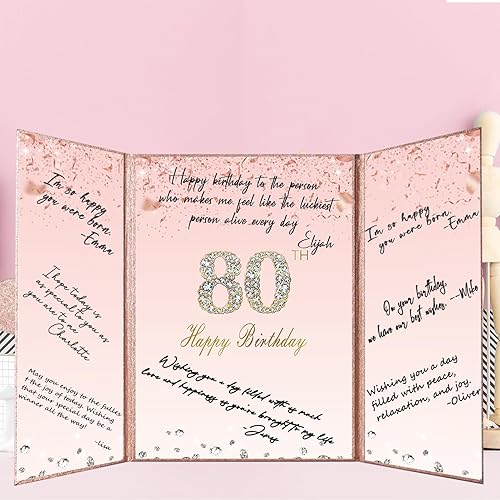 I'm so happy
you were born.
-Emma
I hope today is
as special to you as
you are to us
Charlotte
May you enjoy to the fulles
t the joy of today. Wishing
that your special day be a
winner all the way!
-lisa
Happy birthday to the person
who makes me feel like the luckiest
person alive every day
Elijah
80TH
Happy Birthday
Wishing you a day filled with as much
love and happiness as you've brought to my life
-James
I'm so happy
you were born.
-Emma
On your birthday,
we have our best wishes. --Mike
Wishing you a day
filled with peace,
relaxation, and joy.
-Oliver